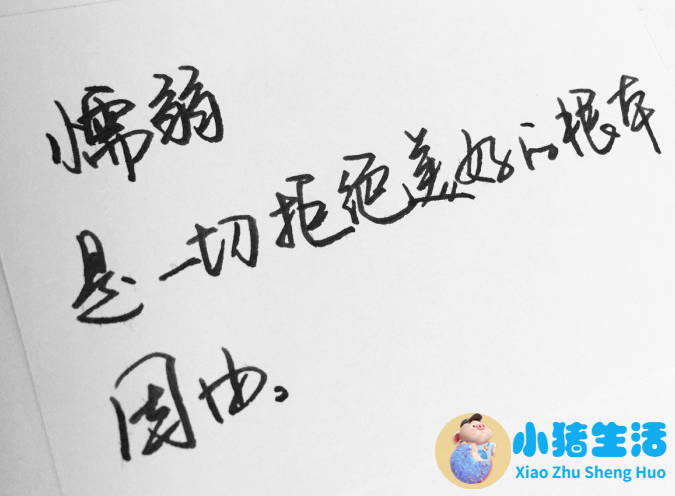 懦弱
是一切拒绝美好的根本
因由。
小猪生活
Xiao Zhu Sheng Huo